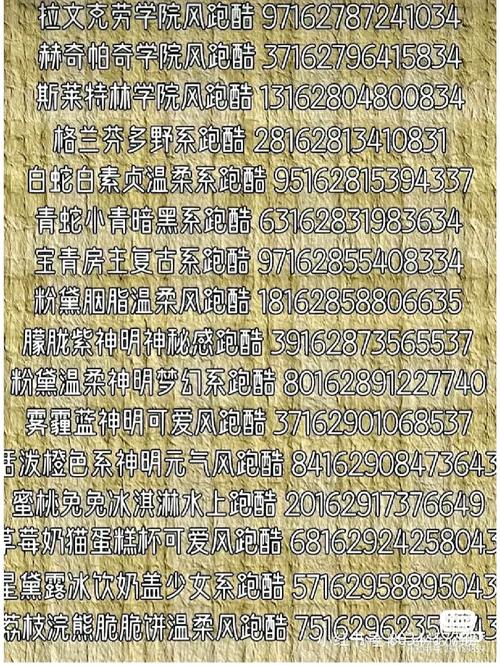 拉文克劳学院风跑酷 97162787241034
赫奇帕奇学院风跑酷 37162796415834
斯莱特林学院风跑酷 13162804800834
格兰芬多野系跑酷 28162813410831
白蛇白素贞温柔系跑酷 95162815394337
青蛇小青暗黑系跑酷 63162831983634
宝青房主复古系跑酷 97162855408334
粉黛胭脂温柔风跑酷 18162858806635
朦胧紫神明神秘感跑酷 39162873565537
粉黛温柔神明梦幻系跑酷 80162891227740
雾霾蓝神明可爱风跑酷 37162901068537
活泼橙色系神明元气风跑酷 84162908473643
蜜桃兔兔冰淇淋水上跑酷 20162917376649
草莓奶猫蛋糕杯可爱风跑酷 68162924258043
星黛露冰饮奶盖少女系跑酷 57162958895043
荔枝浣熊脆脆饼温柔风跑酷 7516296235